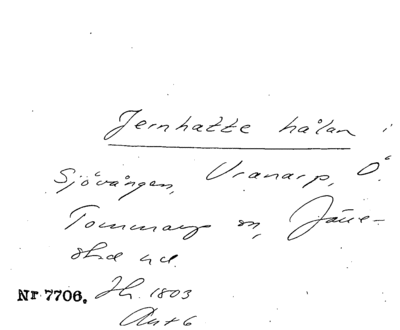 Jernhatte hålan i
Sjövången, Vranarp, Ö.
Tommarp sn, Järre-
stad hd.
Nr 7706. Jh. 1803
Akt 6